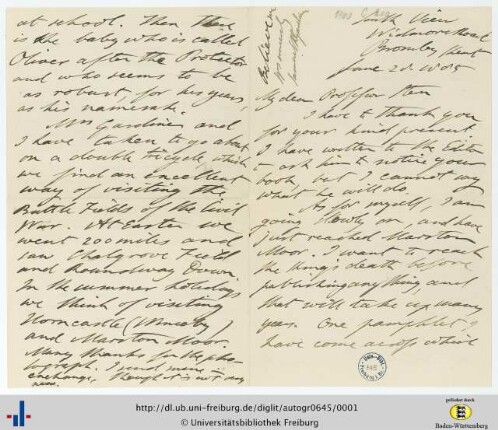 South View
Widmore Road
Bromley, Kent
June 28. 1885
My dear Professor Stern
I have to thank you
for your kind present.
I have written to the Editor
to ask him to notice your
book, but I cannot say
what he will do.
As for myself, I am
going slowly on and have
just reached Marston
Moor. I want to reach
the king's death before
publishing anything and
that will take up many
years. One pamphlet, I
have come across which
at school. Then there
is the baby who is called
Oliver after the Protector
and who seems to be
as robust for his years
as his namesake.
Mrs Gardiner and
I have taken to go about
on a double tricycle, which
we find an excellent
way of visiting the
Battle Fields of the Civil
War. At Easter we
went 200 miles and
saw Chalgrove Field
and Roundway Down.
In the summer holidays
we think of visiting
Horncastle (Winceby)
and Marston Moor.
Many thanks for the pho
tograph. I send mine in
exchange, though it is not any
new.
Believe me
http://dl.ub.uni-freiburg.de/diglit/autogr0645/0001
© Universitätsbibliothek Freiburg
gefördert durch
Baden-Württemberg